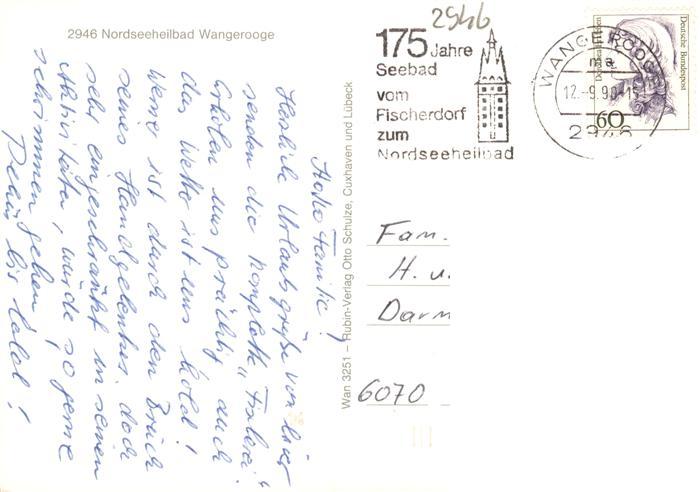 2946 Nordseeheilbad Wangerooge
Hallo Familie!
Herzliche Urlaubsgrüße von hier
senden die komplette "
Erholen uns prächtig auch
das Wetter ist uns hold!
Werner ist durch den Bruch
seines Handgelenkes doch
sehr eingeschränkt in seinen
Aktivitäten, würde so gerne
schwimmen gehen
bis bald!
Wan 3251 – Rubin-Verlag Otto Schulze, Cuxhaven und Lübeck
2946
175 Jahre
Seebad
vom
Fischerdorf
zum
Nordseeheilbad
WANGEROOGE
ma
12.-9.90-15
2946
Deutsche Bundespost
60
Fam.
H. u.
Darm
6070